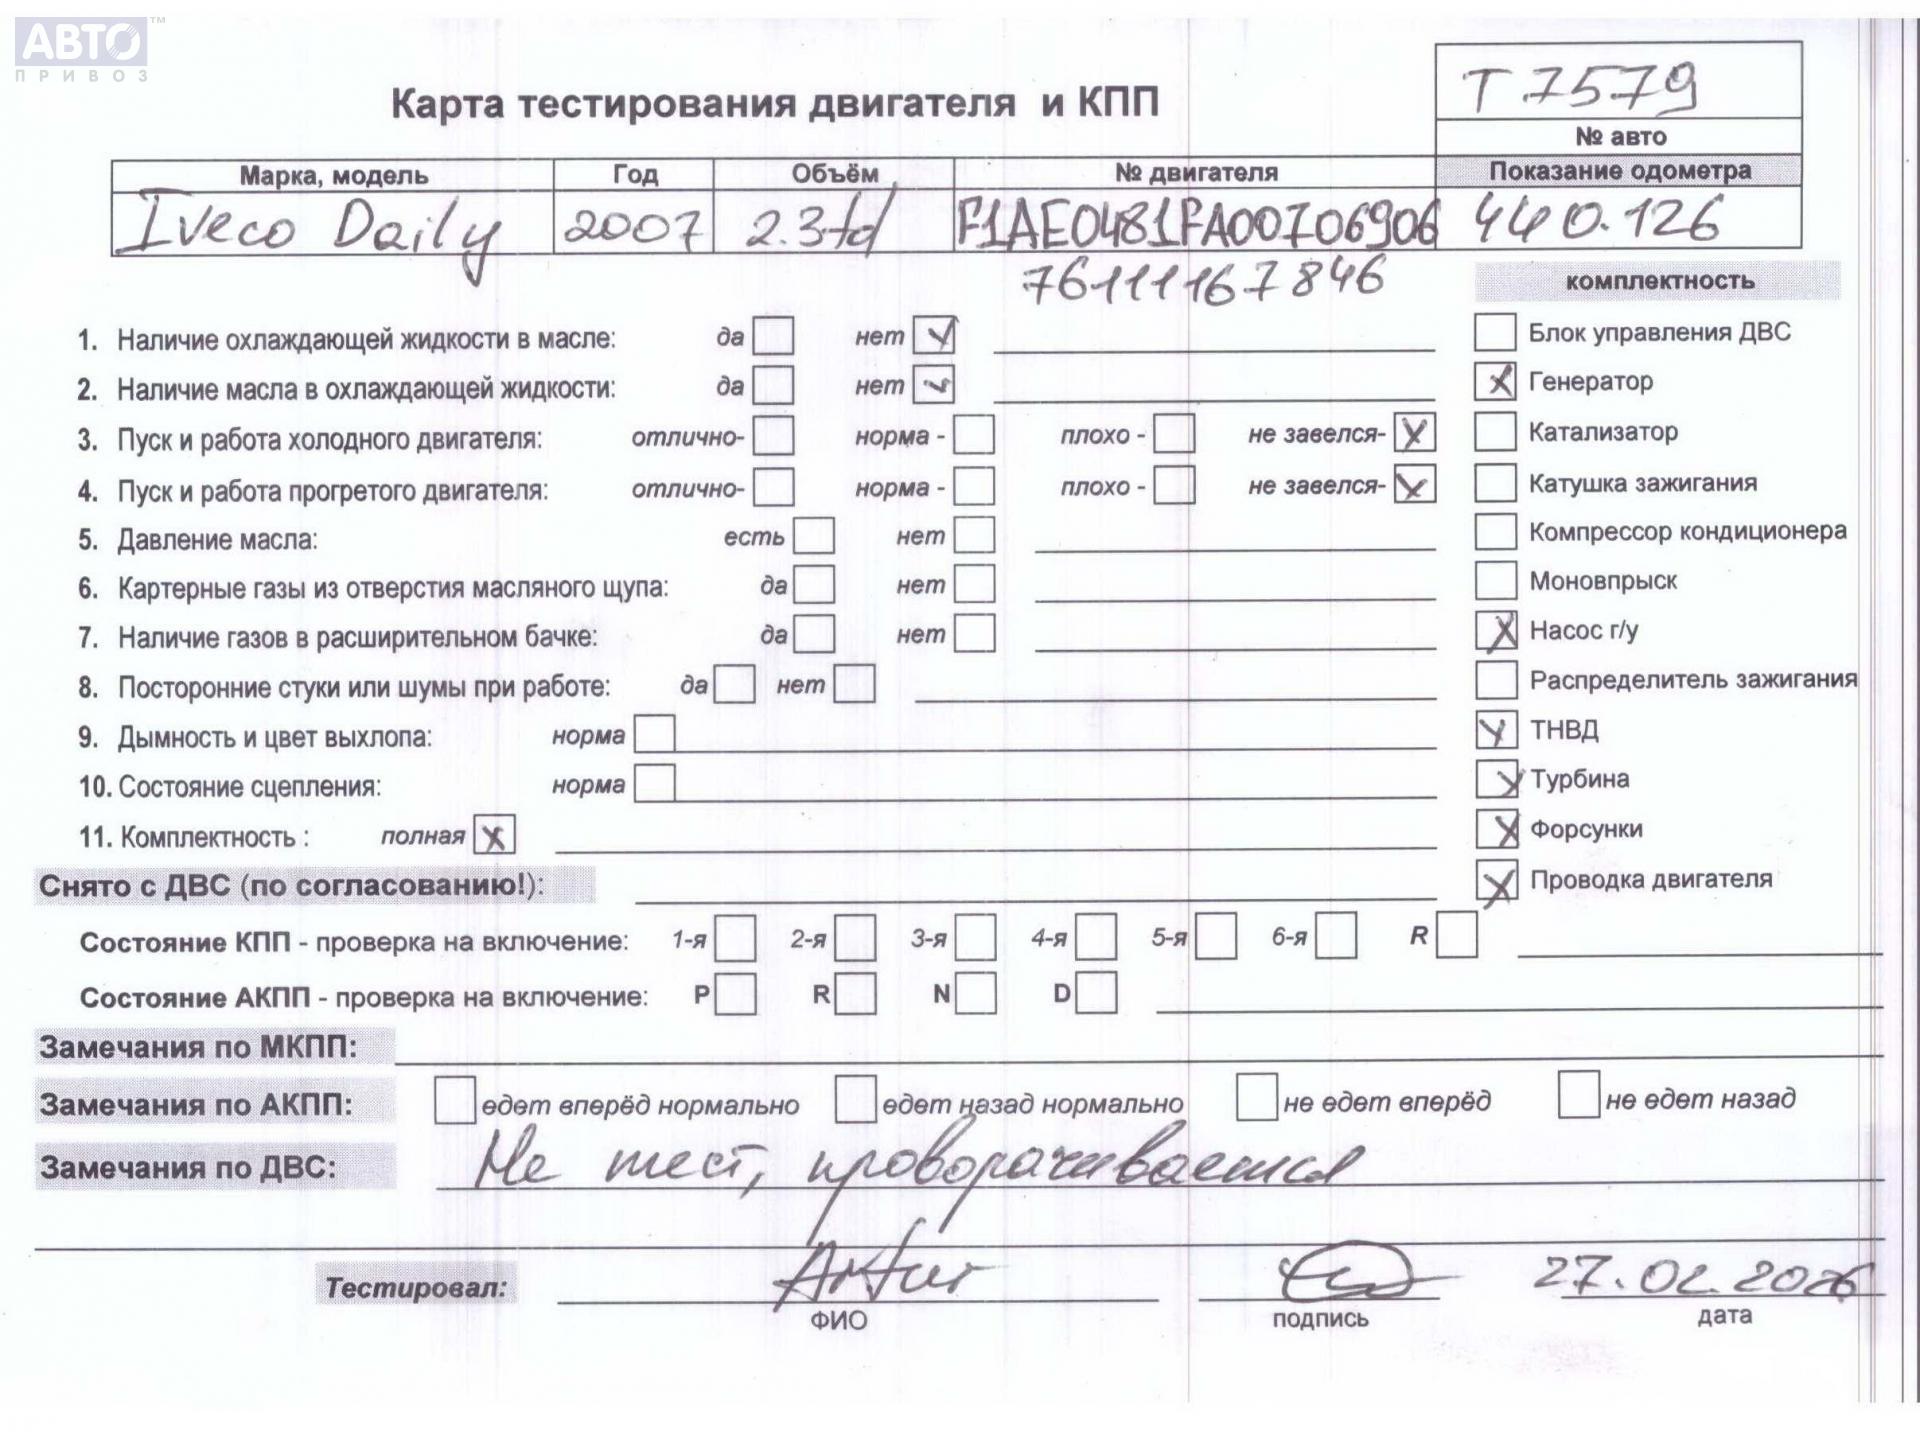 АВТО™
ПРИВОЗ
Т 7579
Карта тестирования двигателя и КПП
№ авто
Марка, модель Год Объём № двигателя Показание одометра
Iveco Daily 2007 2.3td F1AE0481FA00706906 440.126
76111167846
комплектность
1. Наличие охлаждающей жидкости в масле: да нет
Блок управления ДВС
2. Наличие масла в охлаждающей жидкости: да нет
Генератор
3. Пуск и работа холодного двигателя: отлично- норма - плохо - не завелся-
Катализатор
4. Пуск и работа прогретого двигателя: отлично- норма - плохо - не завелся-
Катушка зажигания
5. Давление масла: есть нет
Компрессор кондиционера
6. Картерные газы из отверстия масляного щупа: да нет
Моновпрыск
7. Наличие газов в расширительном бачке: да нет
Насос г/у
8. Посторонние стуки или шумы при работе: да нет
Распределитель зажигания
9. Дымность и цвет выхлопа: норма
ТНВД
10. Состояние сцепления: норма
Турбина
11. Комплектность : полная
Форсунки
Снято с ДВС (по согласованию!):
Проводка двигателя
Состояние КПП - проверка на включение: 1-я 2-я 3-я 4-я 5-я 6-я R
Состояние АКПП - проверка на включение: P R N D
Замечания по МКПП:
Замечания по АКПП: едет вперёд нормально едет назад нормально не едет вперёд не едет назад
Замечания по ДВС: Не тест, проворачивается
Тестировал: 27.02.2026
ФИО подпись дата